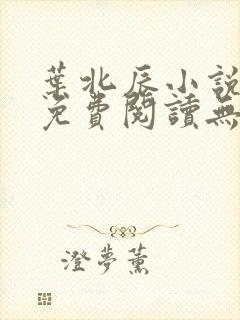 葉北辰小說
免費閱讀無
澄夢薰